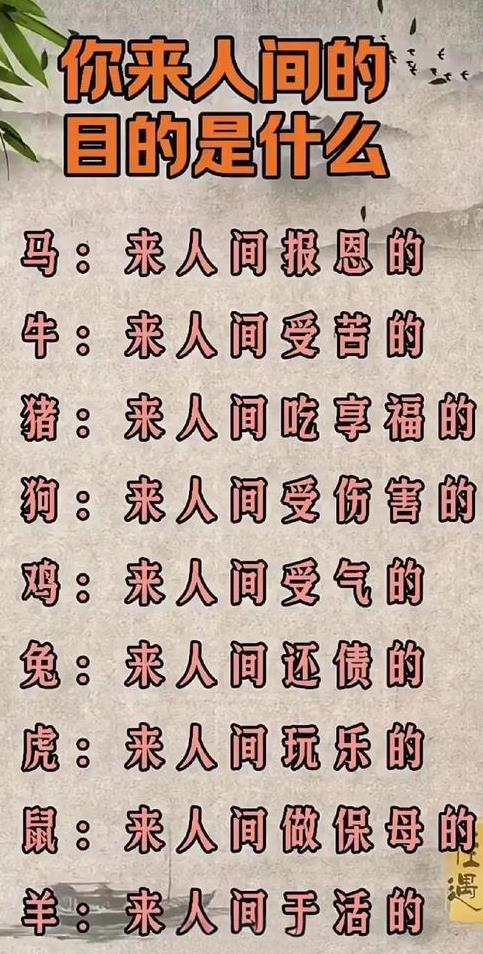 你来人间的
目的是什么
马：来人间报恩的
牛：来人间受苦的
猪：来人间吃享福的
狗：来人间受伤害的
鸡：来人间受气的
兔：来人间还债的
虎：来人间玩乐的
鼠：来人间做保母的
羊：来人间于活的
遇